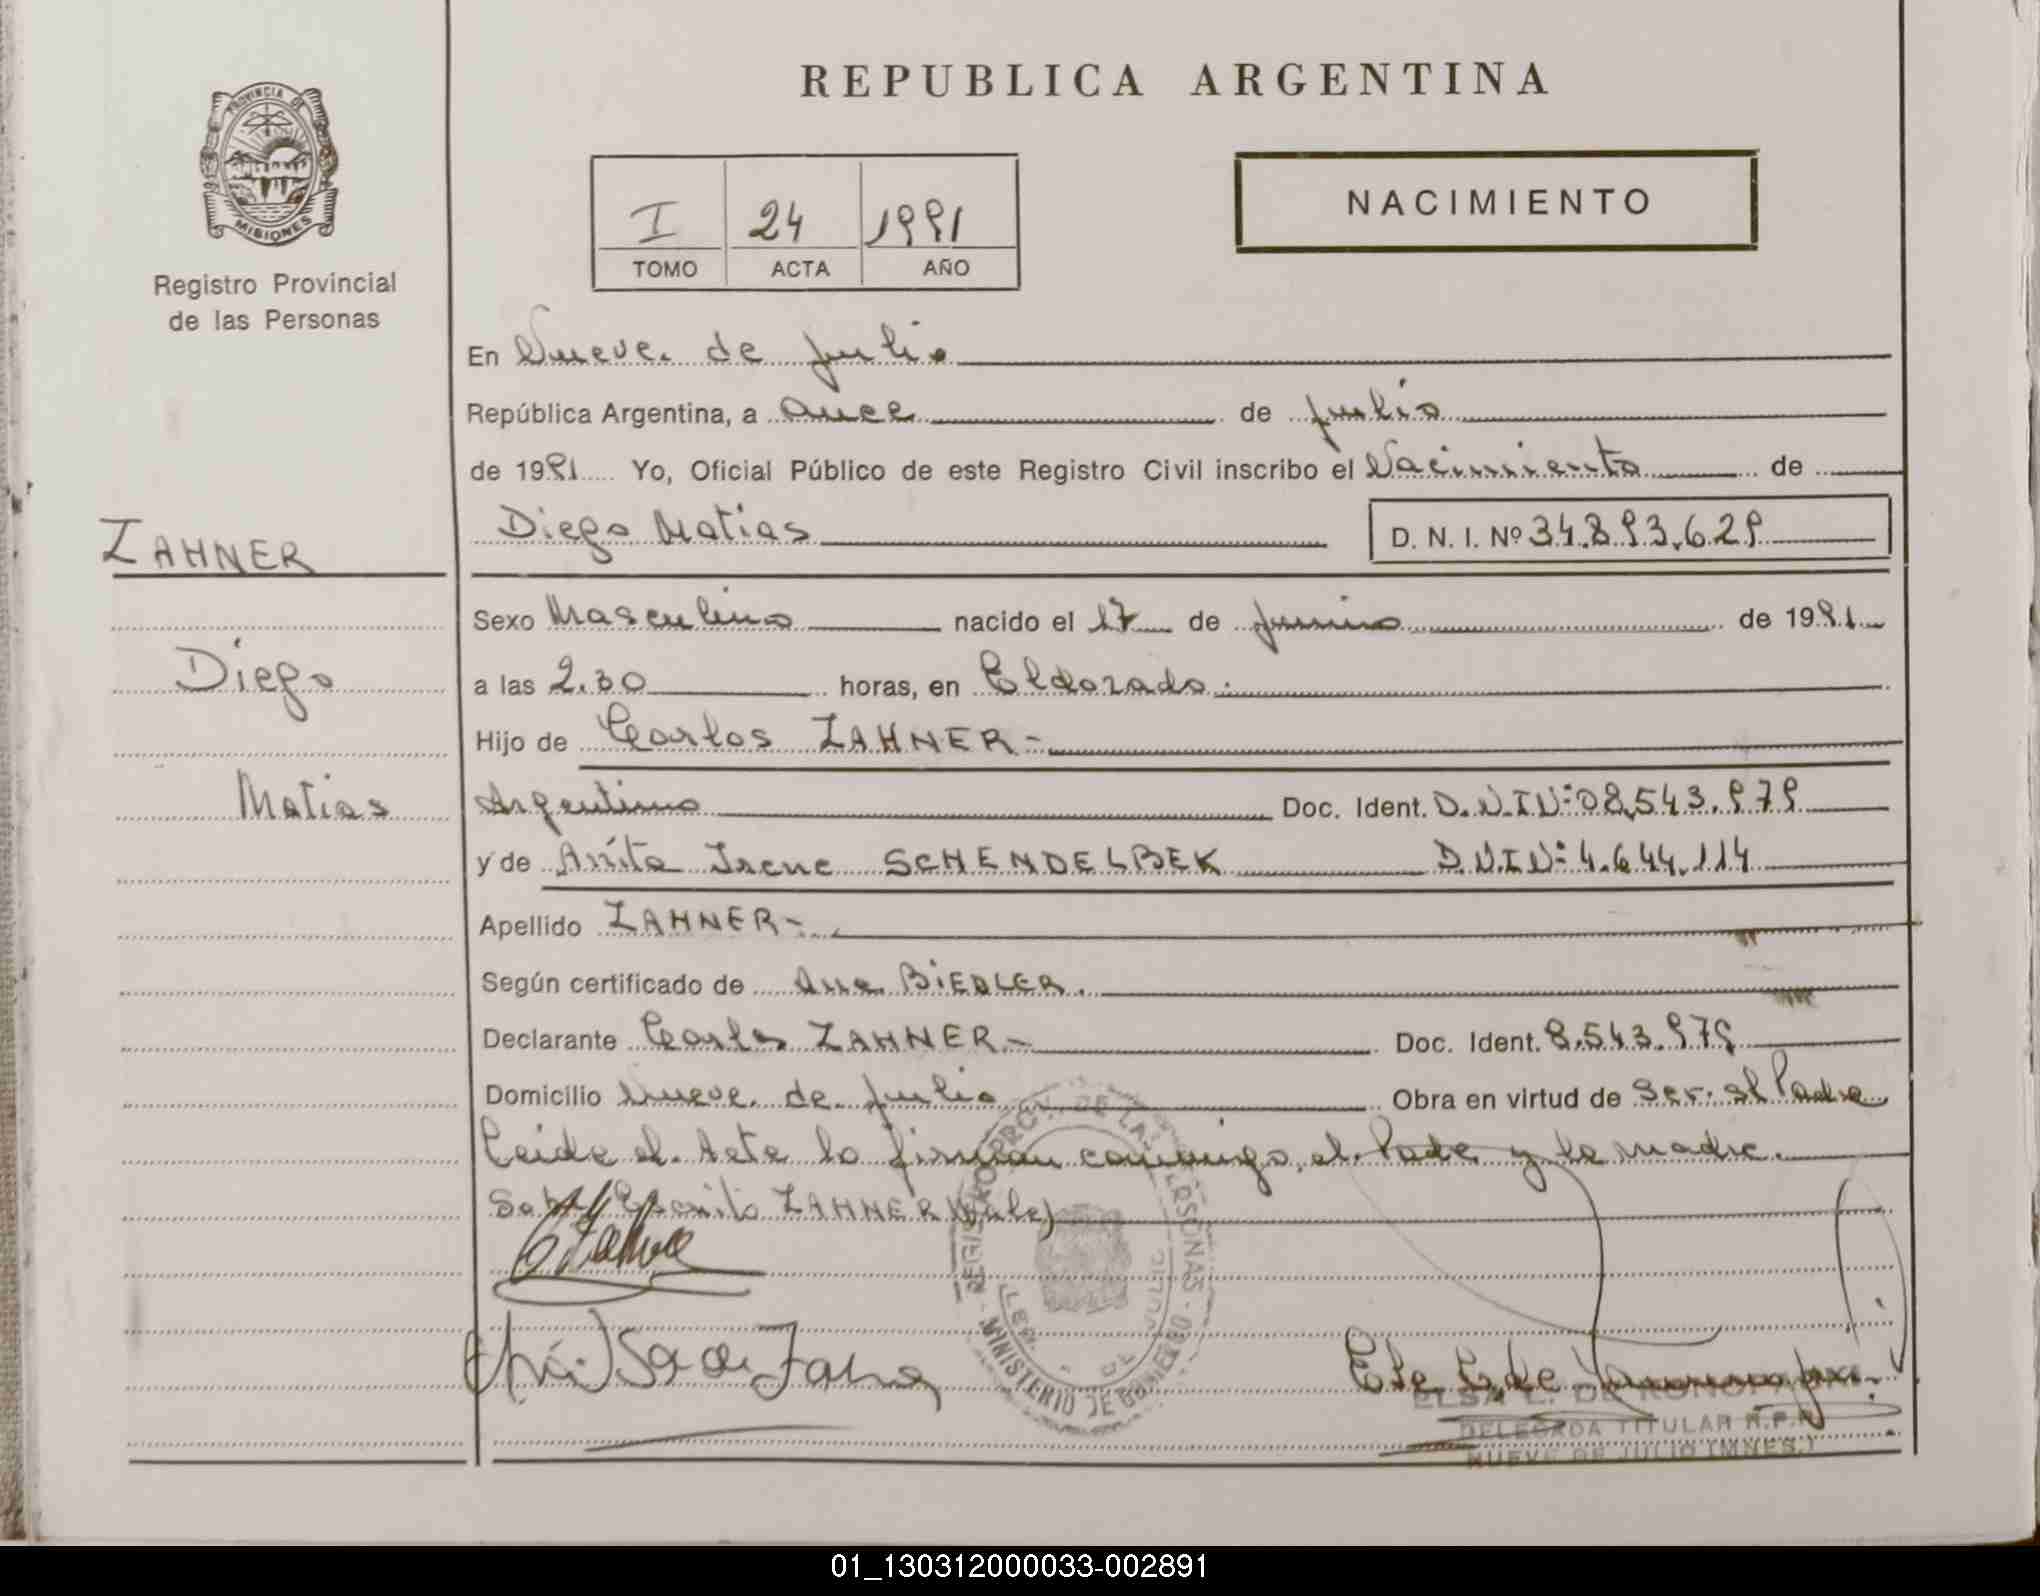 REPUBLICA ARGENTINA
PROVINCIA DE
MISIONES
Registro Provincial
de las Personas
I 24 1991
TOMO ACTA AÑO
NACIMIENTO
En Nueve de Julio
República Argentina, a once de julio
de 1991 Yo, Oficial Público de este Registro Civil inscribo el Nacimiento de
Diego Matias D. N. I. Nº 34.893.629
ZAHNER
Diego
Matias
Sexo Masculino nacido el 17 de junio de 1991
a las 2.30 horas, en Eldorado.
Hijo de Carlos ZAHNER-
Argentino Doc. Ident. D.N.I Nº 08,543.979
y de Anita Irene SCHENDELBEK D.N.I Nº 4.644.114
Apellido ZAHNER-
Según certificado de Ana BIEDLER.
Declarante Carlos ZAHNER- Doc. Ident. 8.543.979
Domicilio Nueve de Julio Obra en virtud de Ser el Padre
Leida el Acta la firman conmigo, el Padre y la madre.
Escrito ZAHNER (Vale)
REGISTRO PROV. DE LAS PERSONAS
MINISTERIO DE GOBIERNO
DE JULIO
ELSA L. DE
DELEGADA TITULAR R.P.P.
NUEVE DE JULIO (MNES.)
01_130312000033-002891